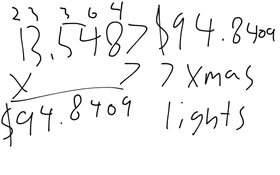 2 3 3 6 4
13.5487 $94.8409
x 7 7 xmas
$94.8409 lights